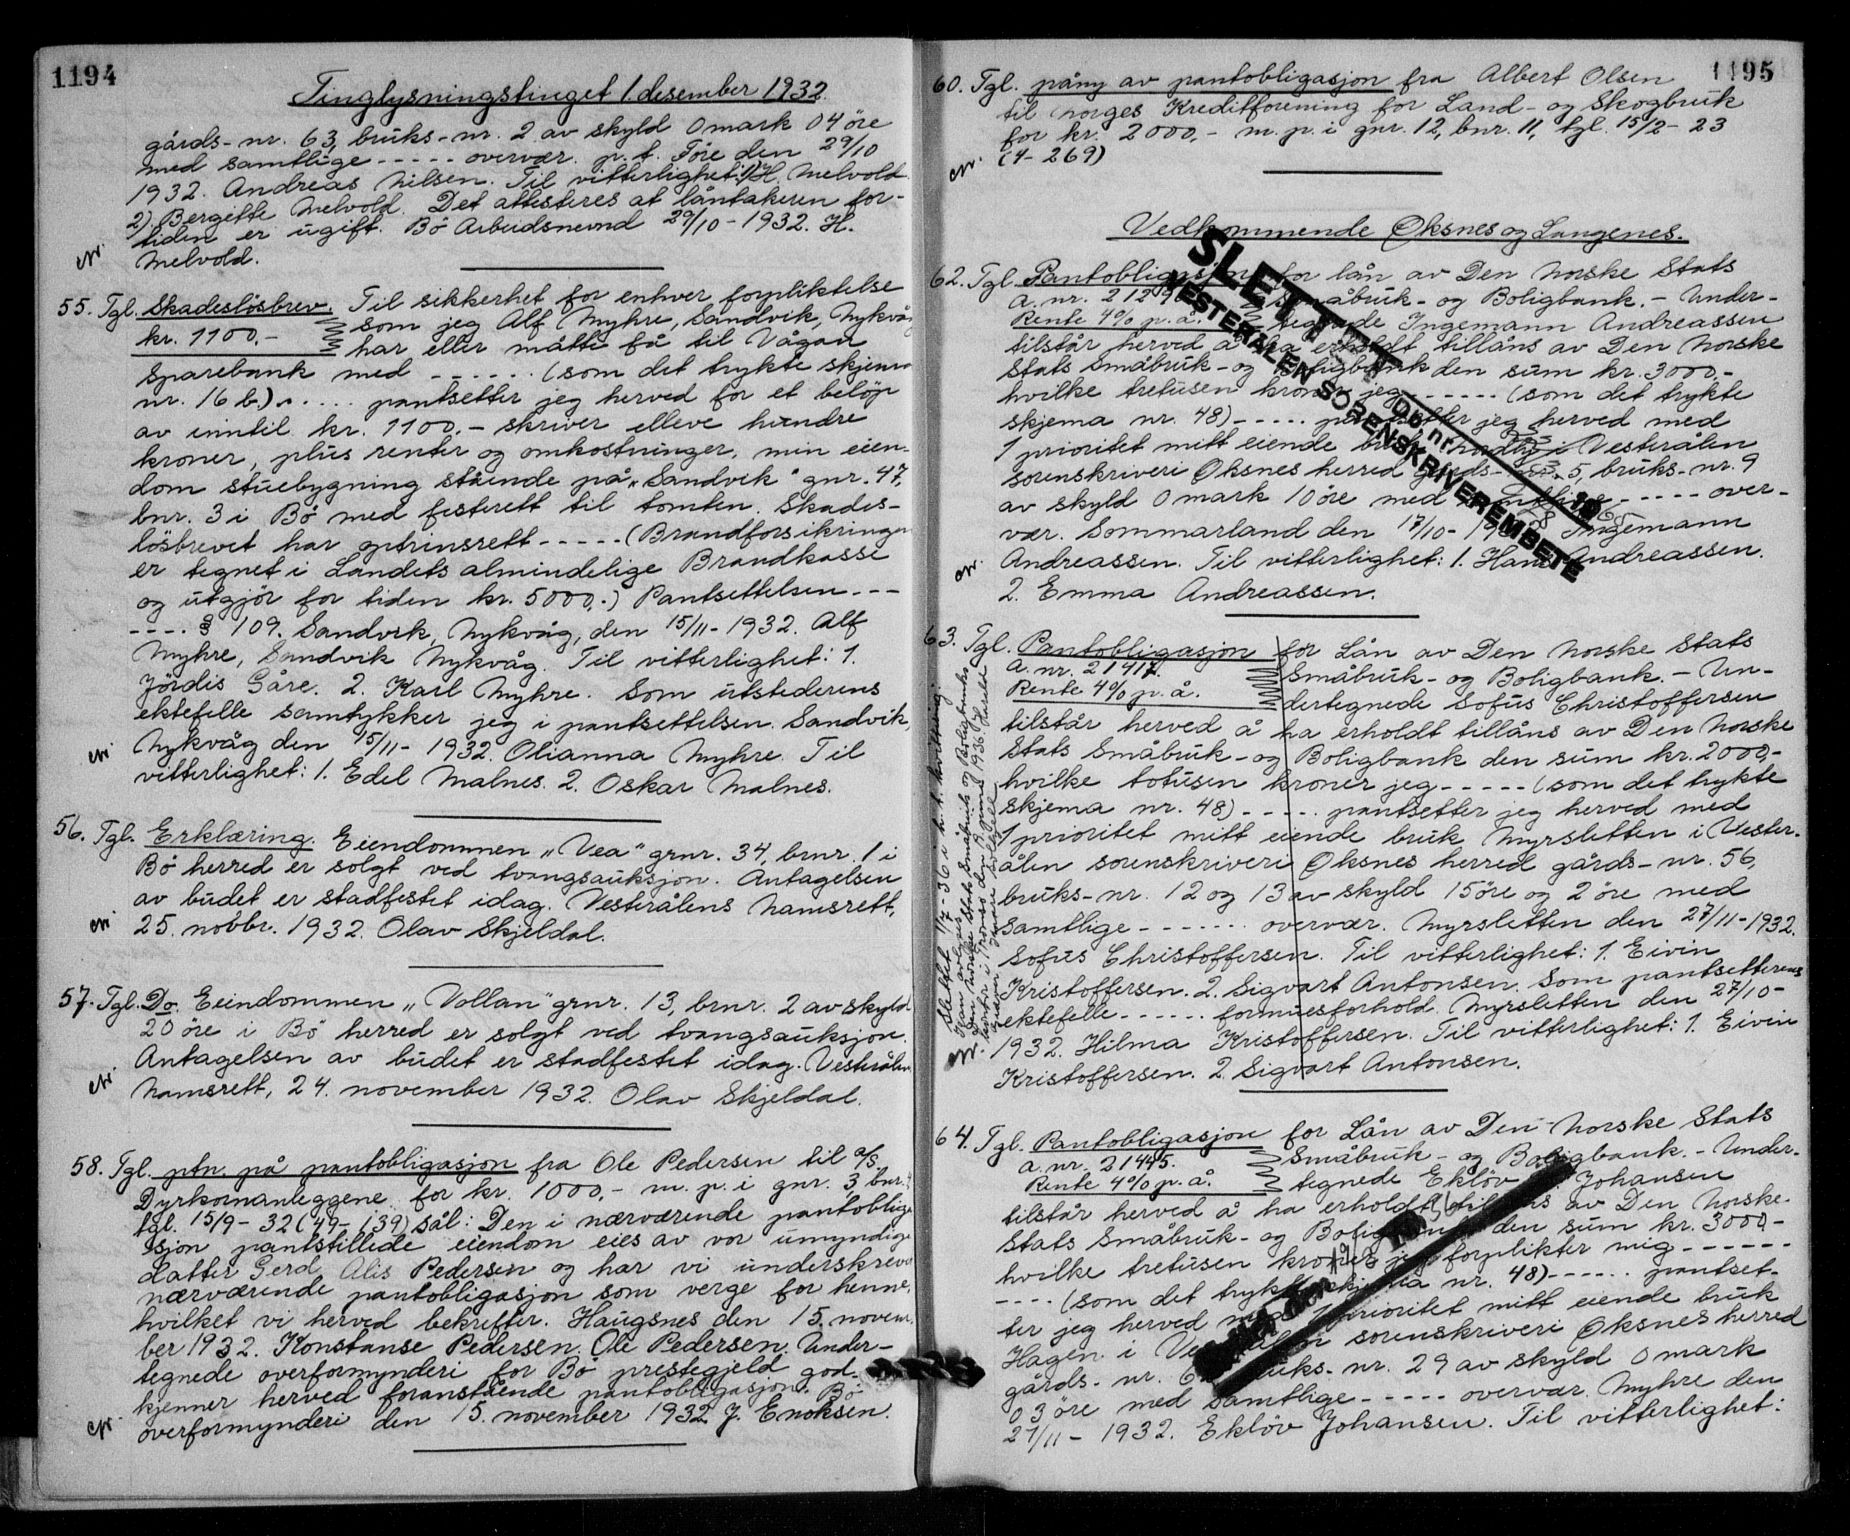 1194
Tinglysningstinget 1. desember 1932.
gårds-nr. 63, bruks-nr. 2 av skyld 0 mark 04 øre
med samtlige ----- overvær. p.t. Føre den 29/10
1932. Andreas Nilsen. Til vitterlighet: 1) H. Melvold
2) Bergette Melvold. Det attesteres at låntakeren for-
tiden er ugift. Bö Arbeidsnevnd 29/10-1932. H.
Melvold.
55. Tgl. Skadeslösbrev. Til sikkerhet for enhver forpliktelse
kr. 1100,- som jeg Alf Myhre, Sandvik, Nykvåg
har eller måtte få til Vågan
Sparebank med ------ (som det trykte skjema
nr. 16 b.) ..... pantsetter jeg herved for et belöp
av inntil kr. 1100.- skriver elleve hundre
kroner, plus renter og omkostninger, min eien-
dom stuebygning stående på "Sandvik" gnr. 47,
bnr. 3 i Bö med festerett til tomten. Skades-
lösbrevet har optrinsrett ----- (Brandforsikringen
er tegnet i Landets almindelige Brandkasse
og utgjör for tiden kr. 5000,-) Pantsettelsen ---
---- § 109. Sandvik, Nykvåg, den 15/11-1932. Alf
Myhre, Sandvik Nykvåg. Til vitterlighet: 1.
Jördis Gåre. 2. Karl Myhre. Som utstederens
ektefelle samtykker jeg i pantsettelsen. Sandvik,
Nykvåg den 15/11-1932. Olianna Myhre. Til
vitterlighet: 1. Edel Malnes. 2. Oskar Malnes.
56. Tgl. Erklæring. Eiendommen "Vea" grnr. 34, brnr. 1 i
Bö herred er solgt ved tvangsauksjon. Antagelsen
av budet er stadfestet idag. Vesterålens Namsrett,
25. novbr. 1932. Olav Skjeldal.
57. Tgl. Do. Eeindommen "Vollan" grnr. 13, brnr. 2 av skyld
20 öre i Bö herred er solgt ved tvangsauksjon.
Antagelsen av budet er stadfestet idag. Vesterålen
Namsrett, 24. november 1932. Olav Skjeldal.
58. Tgl. ptn. på pantobligasjon fra Ole Pedersen til A/S.
Dyrkomanleggene for kr. 1000,- m. p. i gnr. 3, bnr.
tgl. 15/9-32 (49-139) sål: Den i nærværende pantobliga
sjon pantstillede eiendom eies av vor umyndige
datter Gerd Alis Pedersen og har vi underskrevet
nærværende pantobligasjon som verge for henne,
hvilket vi herved bekrefter. Haugsnes den 15. novem
ber 1932. Konstanse Pedersen. Ole Pedersen. Under-
tegnede overformynderi for Bö prestegjeld god-
kjenner herved foranstående pantobligasjon. Bö
overformynderi den 15. november 1932 J. Enoksen.
1195
60. Tgl. påny av pantobligasjon fra Albert Olsen
til Norges Kreditforening for Land- og Skogbruk
for kr. 2000,- m. p. i gnr. 12, bnr. 11, tgl. 15/2-23
(4-269)
Vedkommende Øksnes og Langenes.
62. Tgl. Pantobligasjon for lån av Den Norske Stats
A. nr. 212 Småbruk- og Boligbank. - Under-
Rente 4% p. å. tegnede Ingemann Andreassen
tilstår herved å ha erholdt tillåns av Den Norske
Stats Småbruk- og Boligbank den sum kr. 3000,-
hvilke tretusen kroner jeg ----- (som det trykte
skjema nr. 48) ----- pantsetter jeg herved med
1 prioritet mitt eiende bruk i Vesterålen
sorenskriveri Øksnes herred gårds-nr. 5, bruks-nr. 9
av skyld 0 mark 10 öre med samtlige ----- over-
vær. Sommarland den 17/10-19 Ingemann
Andreassen. Til vitterlighet: 1. Hans Andreassen.
2. Emma Andreassen.
SLETTET
Db nr. 19
VESTERÅLEN SORENSKRIVEREMBETE
63. Tgl. Pantobligasjon for Lån av Den Norske Stats
A. nr. 21417. Småbruk- og Boligbank. - Un-
Rente 4% p. å. dertegnede Sofus Christoffersen
tilstår herved å ha erholdt tillåns av Den Norske
Stats Småbruk- og Boligbank den sum kr. 2000,-
hvilke totusen kroner jeg ----- (som det trykte
skjema nr. 48) ----- pantsetter jeg herved med
1 prioritet mitt eiende bruk Myrsletten i Vester-
ålen sorenskriveri Øksnes herred gårds-nr. 56,
bruks-nr. 12 og 13 av skyld 15 öre og 2 öre med
samtlige ------- overvær. Myrsletten den 27/11-1932.
Sofus Christoffersen. Til vitterlighet: 1. Eivin
Kristoffersen. 2. Sigvart Antonsen. Som pantsetterens
ektefelle ------ formuesforhold. Myrsletten den 27/10-
1932. Hilma Kristoffersen. Til vitterlighet: 1. Eivin
Kristoffersen. 2. Sigvart Antonsen.
Slettet 1/7-36 i h. t. kvittering:
64. Tgl. Pantobligasjon for Lån av Den Norske Stats
A. nr. 21445. Småbruk- og Boligbank. - Under-
Rente 4% p. å. tegnede Eklöv Johansen
tilstår herved å ha erholdt tillåns av Den Norske
Stats Småbruk- og Boligbank den sum kr. 3000,-
hvilke tretusen kroner jeg forplikter mig ------
---- (som det trykte skjema nr. 48) ------ pantset-
ter jeg herved med 1 prioritet mitt eiende bruk
Hagen i Vesterålen sorenskriveri Øksnes herred
gårds-nr. 6 bruks-nr. 29 av skyld 0 mark
03 öre med samtlige ----- overvær. Myhre den
27/11-1932. Eklöv Johansen. Til vitterlighet: